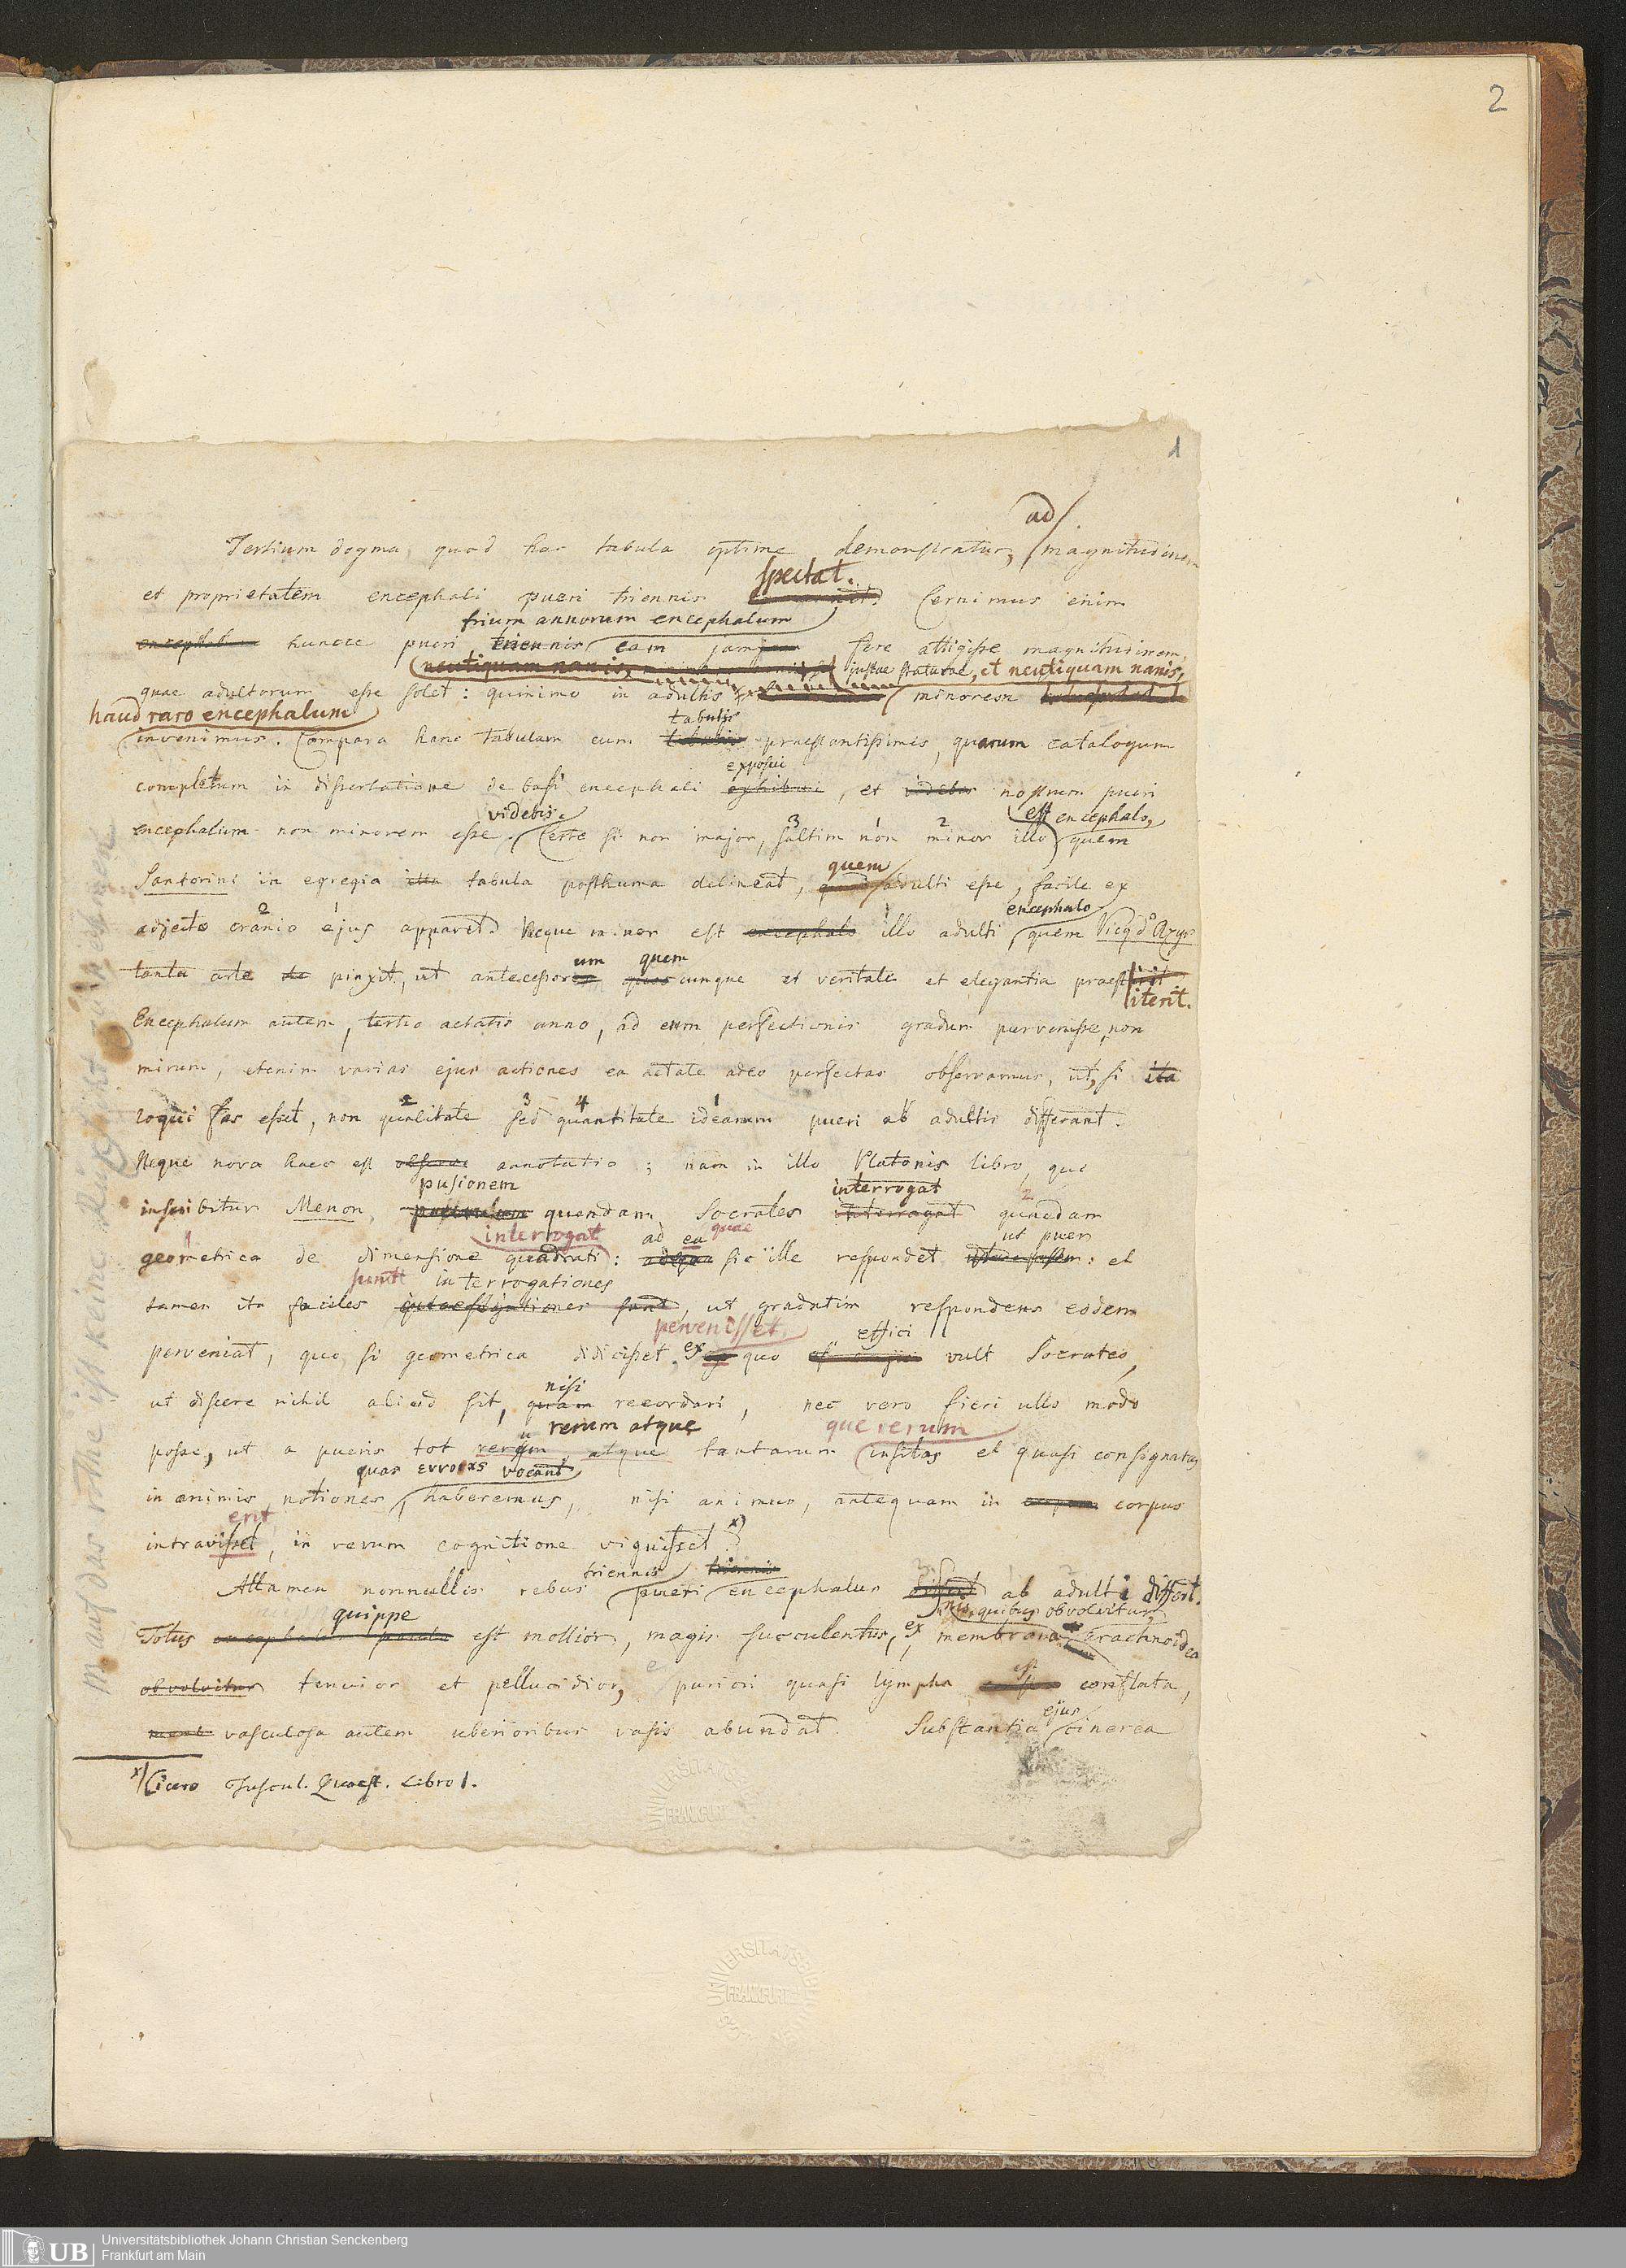 2
1
Tertium dogma, quod hac tabula optime demonstratur, ad magnitudinem
et proprietatem encephali pueri triennis spectat. Cernimus enim
trium annorum encephalum
encephalum huncce pueri triennis eam jam fere attigisse magnitudinem,
neutiquam nanis, justae staturae, et neutiquam nanis,
quae adultorum esse solet: quinimo in adultis minorem
haud raro encephalum
invenimus. Compara hanc tabulam cum tabulis praestantissimis, quarum catalogum
exposui
completum in dissertatione de basi encephali exhibui, et videbis nostrum pueri
videbis. est encephalo,
encephalum non minorem esse. Certe si non major, saltim non minor illo quem
3 1 2
quem
Santorini in egregia illa tabula posthuma delineat, adulti esse, facile ex
2 1 encephalo
adjecto cranio ejus apparet. Neque minor est encephalo illo adulti quem Vicq d'Azyr
um quem
tanta arte pinxit, ut antecessor cunque et veritate et elegantia praest
iterit.
Encephalum autem, tertio aetatis anno, ad eum perfectionis gradum pervenisse, non
mirum, etenim varias ejus actiones ea aetate adeo perfectas observamus, ut, si ita
loqui fas esset, non qualitate sed quantitate idearum pueri ab adultis differant.
2 3 4 1
Neque nova haec est annotatio; nam in illo Platonis libro, qui
pusionem interrogat 2
inscribitur Menon, quendam Socrates interrogat quaedam
1 interrogat ad ea quae ut puer
geometrica de dimensione quadrati: sic ille respondet: et
sunt interrogationes
tamen ita faciles sunt, ut gradatim respondens eodem
pervenisset, effici
perveniat, quo, si geometrica didicisset. ex quo vult Socrates,
nisi
ut discere nihil aliud sit, quam recordari, nec vero fieri ullo modo
rerum atque que rerum
posse, ut a pueris tot rerum atque tantarum insitas et quasi consignatas
quas εννοιας vocant
in animis, notiones, haberemus, nisi animus, antequam in corpus
erit
intravisset, in rerum cognitione viguisset x)
triennis triennis
Attamen nonnullis rebus pueri encephalus ab adulti differt.
quippe quibus obvolvitur,
Totus est mollior, magis succulentus, ex membranis arachnoidea
obvolvitur tenuior et pellucidior, puriori quasi lympha conflata,
ejus
vasculosa autem uberioribus vasis abundat. Substantia cinerea
x) Cicero Tuscul. Quaest. Libro 1.
NB auf das rothe ist keine Rücksicht zu nehmen
UNIVERSITÄTSBIBLIOTHEK
FRANKFURT
UB Universitätsbibliothek Johann Christian Senckenberg
Frankfurt am Main